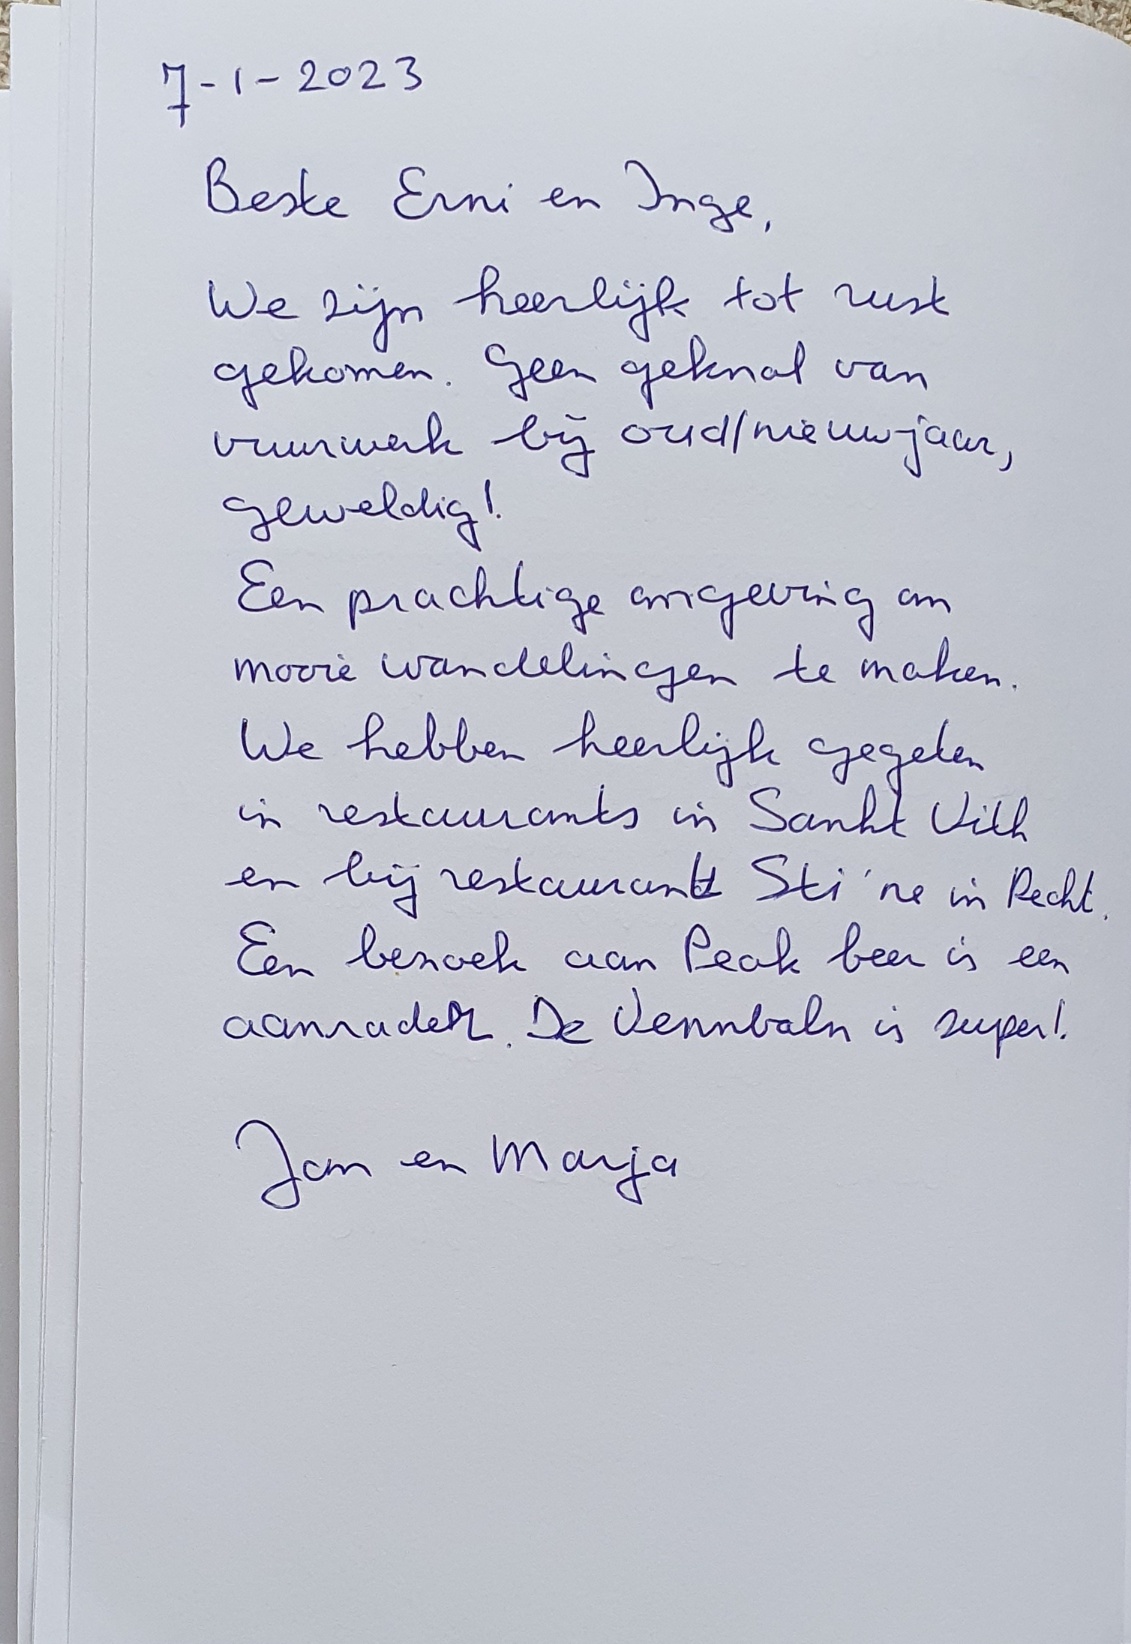 7-1-2023
Beste Erni en Inge,
We zijn heerlijk tot rust
gekomen. Geen geknal van
vuurwerk bij oud/nieuwjaar,
geweldig!
Een prachtige omgeving om
mooie wandelingen te maken.
We hebben heerlijk gegeten
in restaurants in Sankt Vith
en bij restaurant Sti'ne in Recht.
Een bezoek aan Peak beer is een
aanrader. De Vennbahn is super!
Jan en Marja